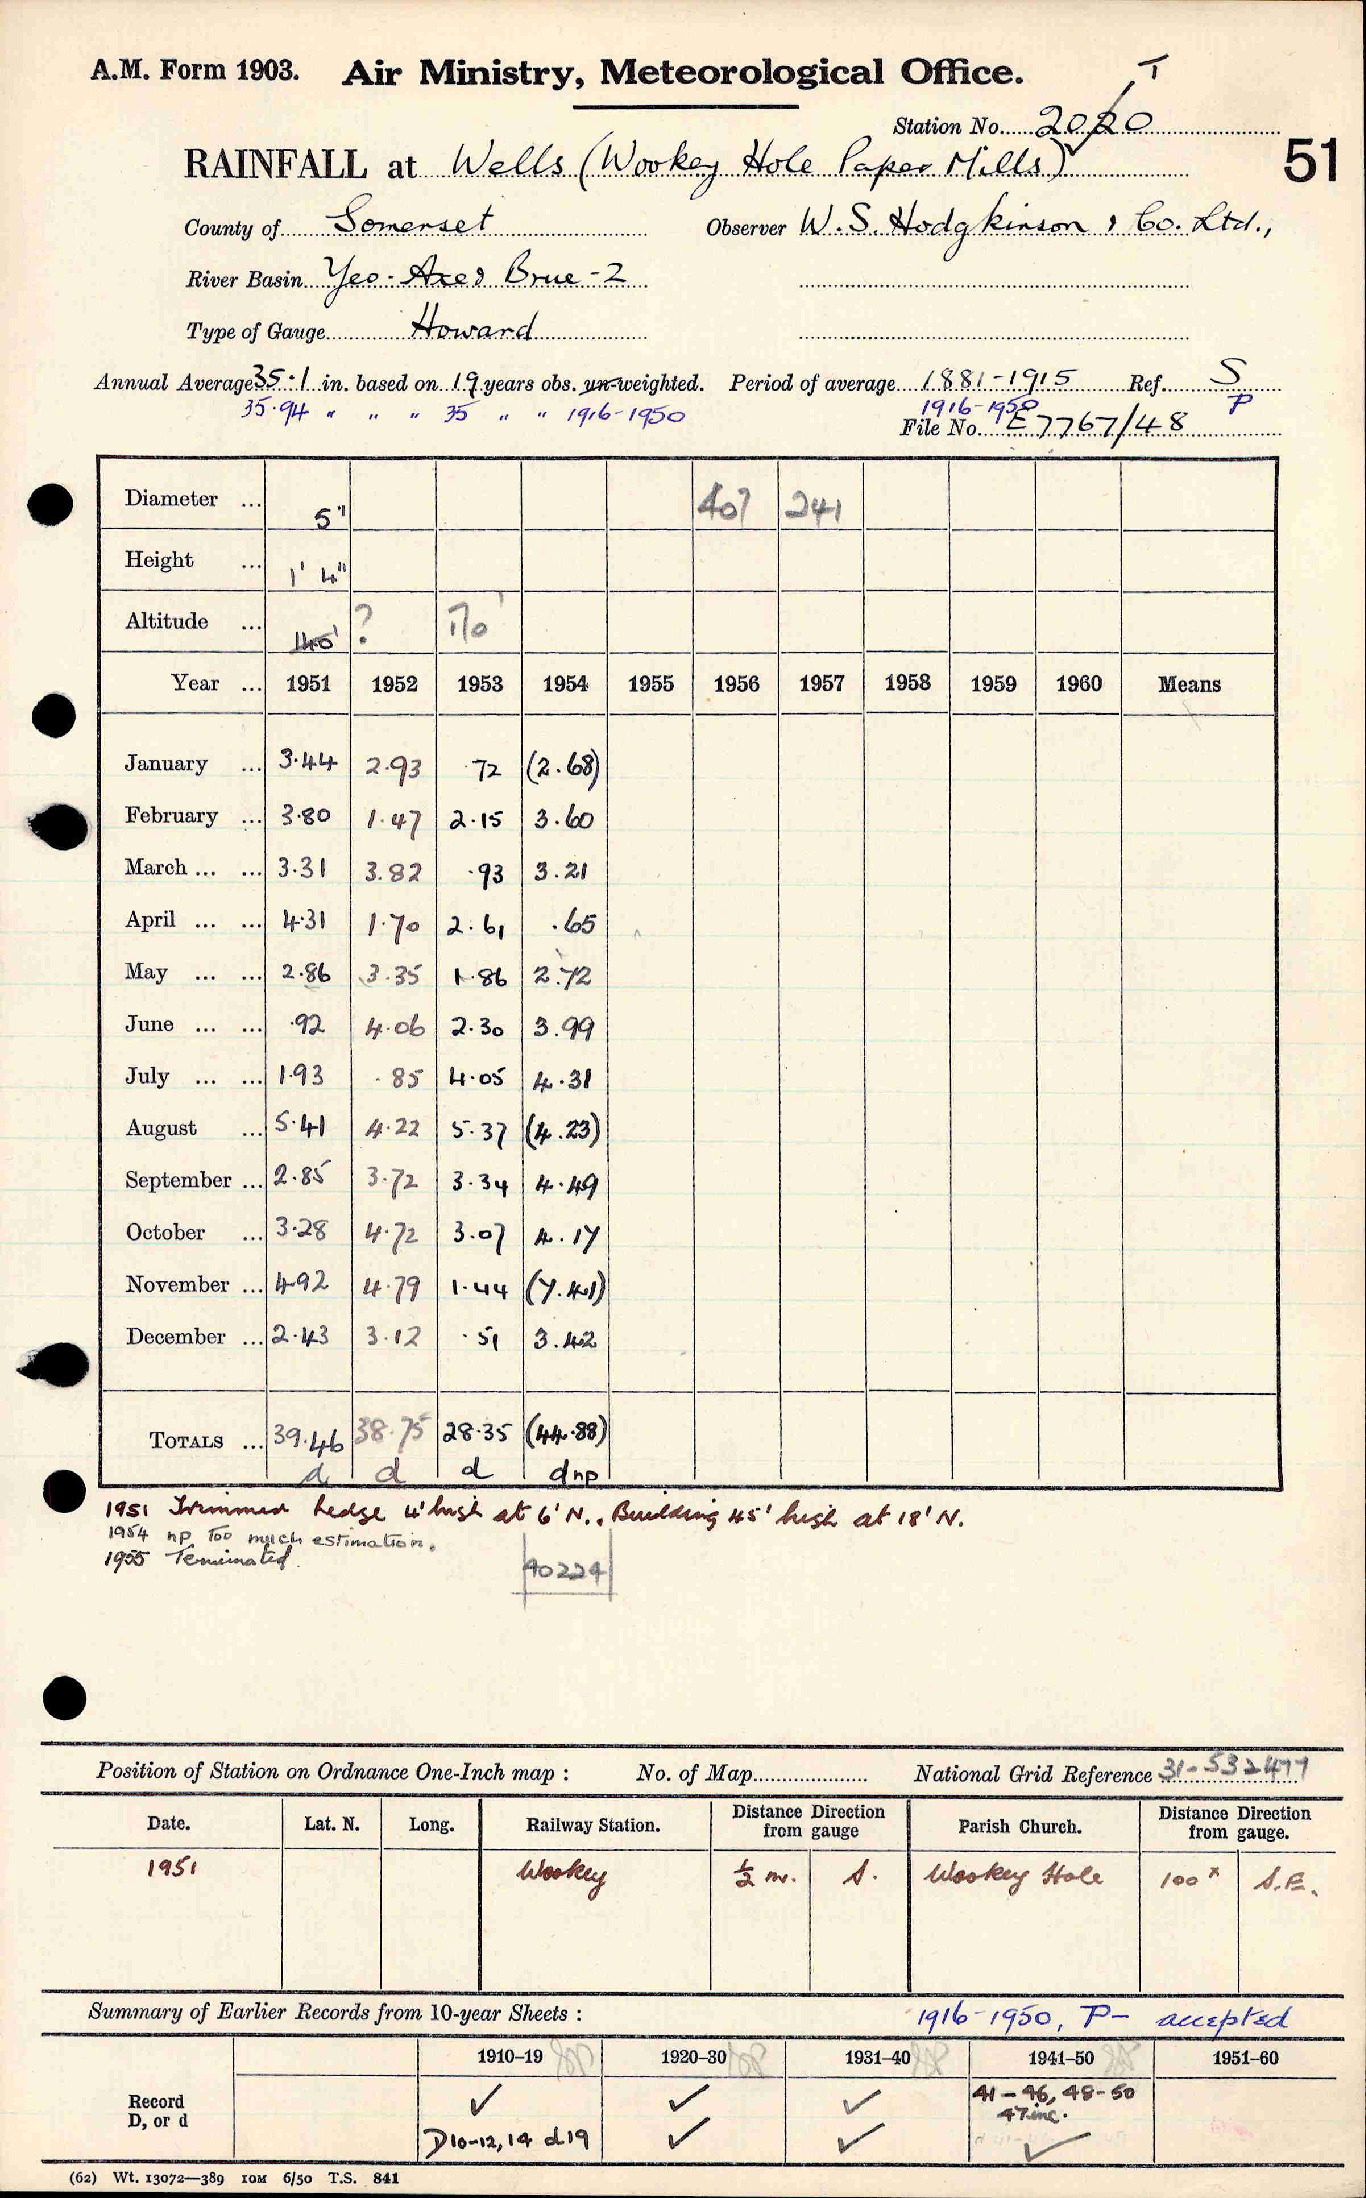 A.M. Form 1903. Air Ministry, Meteorological Office.
T
Station No. 2020
RAINFALL at Wells (Wookey Hole Paper Mills) 51
County of Somerset Observer W. S. Hodgkinson & Co. Ltd.,
River Basin Yeo-Axe & Brue-2
Type of Gauge Howard
Annual Average 35.1 in. based on 19 years obs. un-weighted. Period of average 1881-1915 Ref. S
35.94 " " " 35 " " 1916-1950 1916-1950 P
File No. E7767/48
Diameter ... 5" 407 241
Height ... 1' 4"
Altitude ... 140' ? 170'
Year ... 1951 1952 1953 1954 1955 1956 1957 1958 1959 1960 Means
January ... 3.44 2.93 .72 (2.68)
February ... 3.80 1.47 2.15 3.60
March ... ... 3.31 3.82 .93 3.21
April ... ... 4.31 1.70 2.61 .65
May ... ... 2.86 3.35 1.86 2.72
June ... ... .92 4.06 2.30 3.99
July ... ... 1.93 .85 4.05 4.31
August ... 5.41 4.22 5.37 (4.23)
September ... 2.85 3.72 3.34 4.49
October ... 3.28 4.72 3.07 4.17
November ... 4.92 4.79 1.44 (7.41)
December ... 2.43 3.12 .51 3.42
TOTALS ... 39.46 38.75 28.35 (44.88)
d d d d np
1951 Trimmed hedge 4' high at 6' N., Building 45' high at 18' N.
1954 np Too much estimation.
1955 Terminated.
40224
Position of Station on Ordnance One-Inch map : No. of Map National Grid Reference 31-532477
Date. Lat. N. Long. Railway Station. Distance Direction from gauge Parish Church. Distance Direction from gauge.
1951 Wookey ½ m. S. Wookey Hole 100x S.E.
Summary of Earlier Records from 10-year Sheets : 1916-1950, P- accepted
1910–19 1920–30 1931–40 1941–50 1951–60
Record ✓ ✓ ✓ 41-46, 48-50
47 inc.
D, or d D10-12, 14 d19 ✓ ✓ ✓
(62) Wt. 13072—389 10M 6/50 T.S. 841